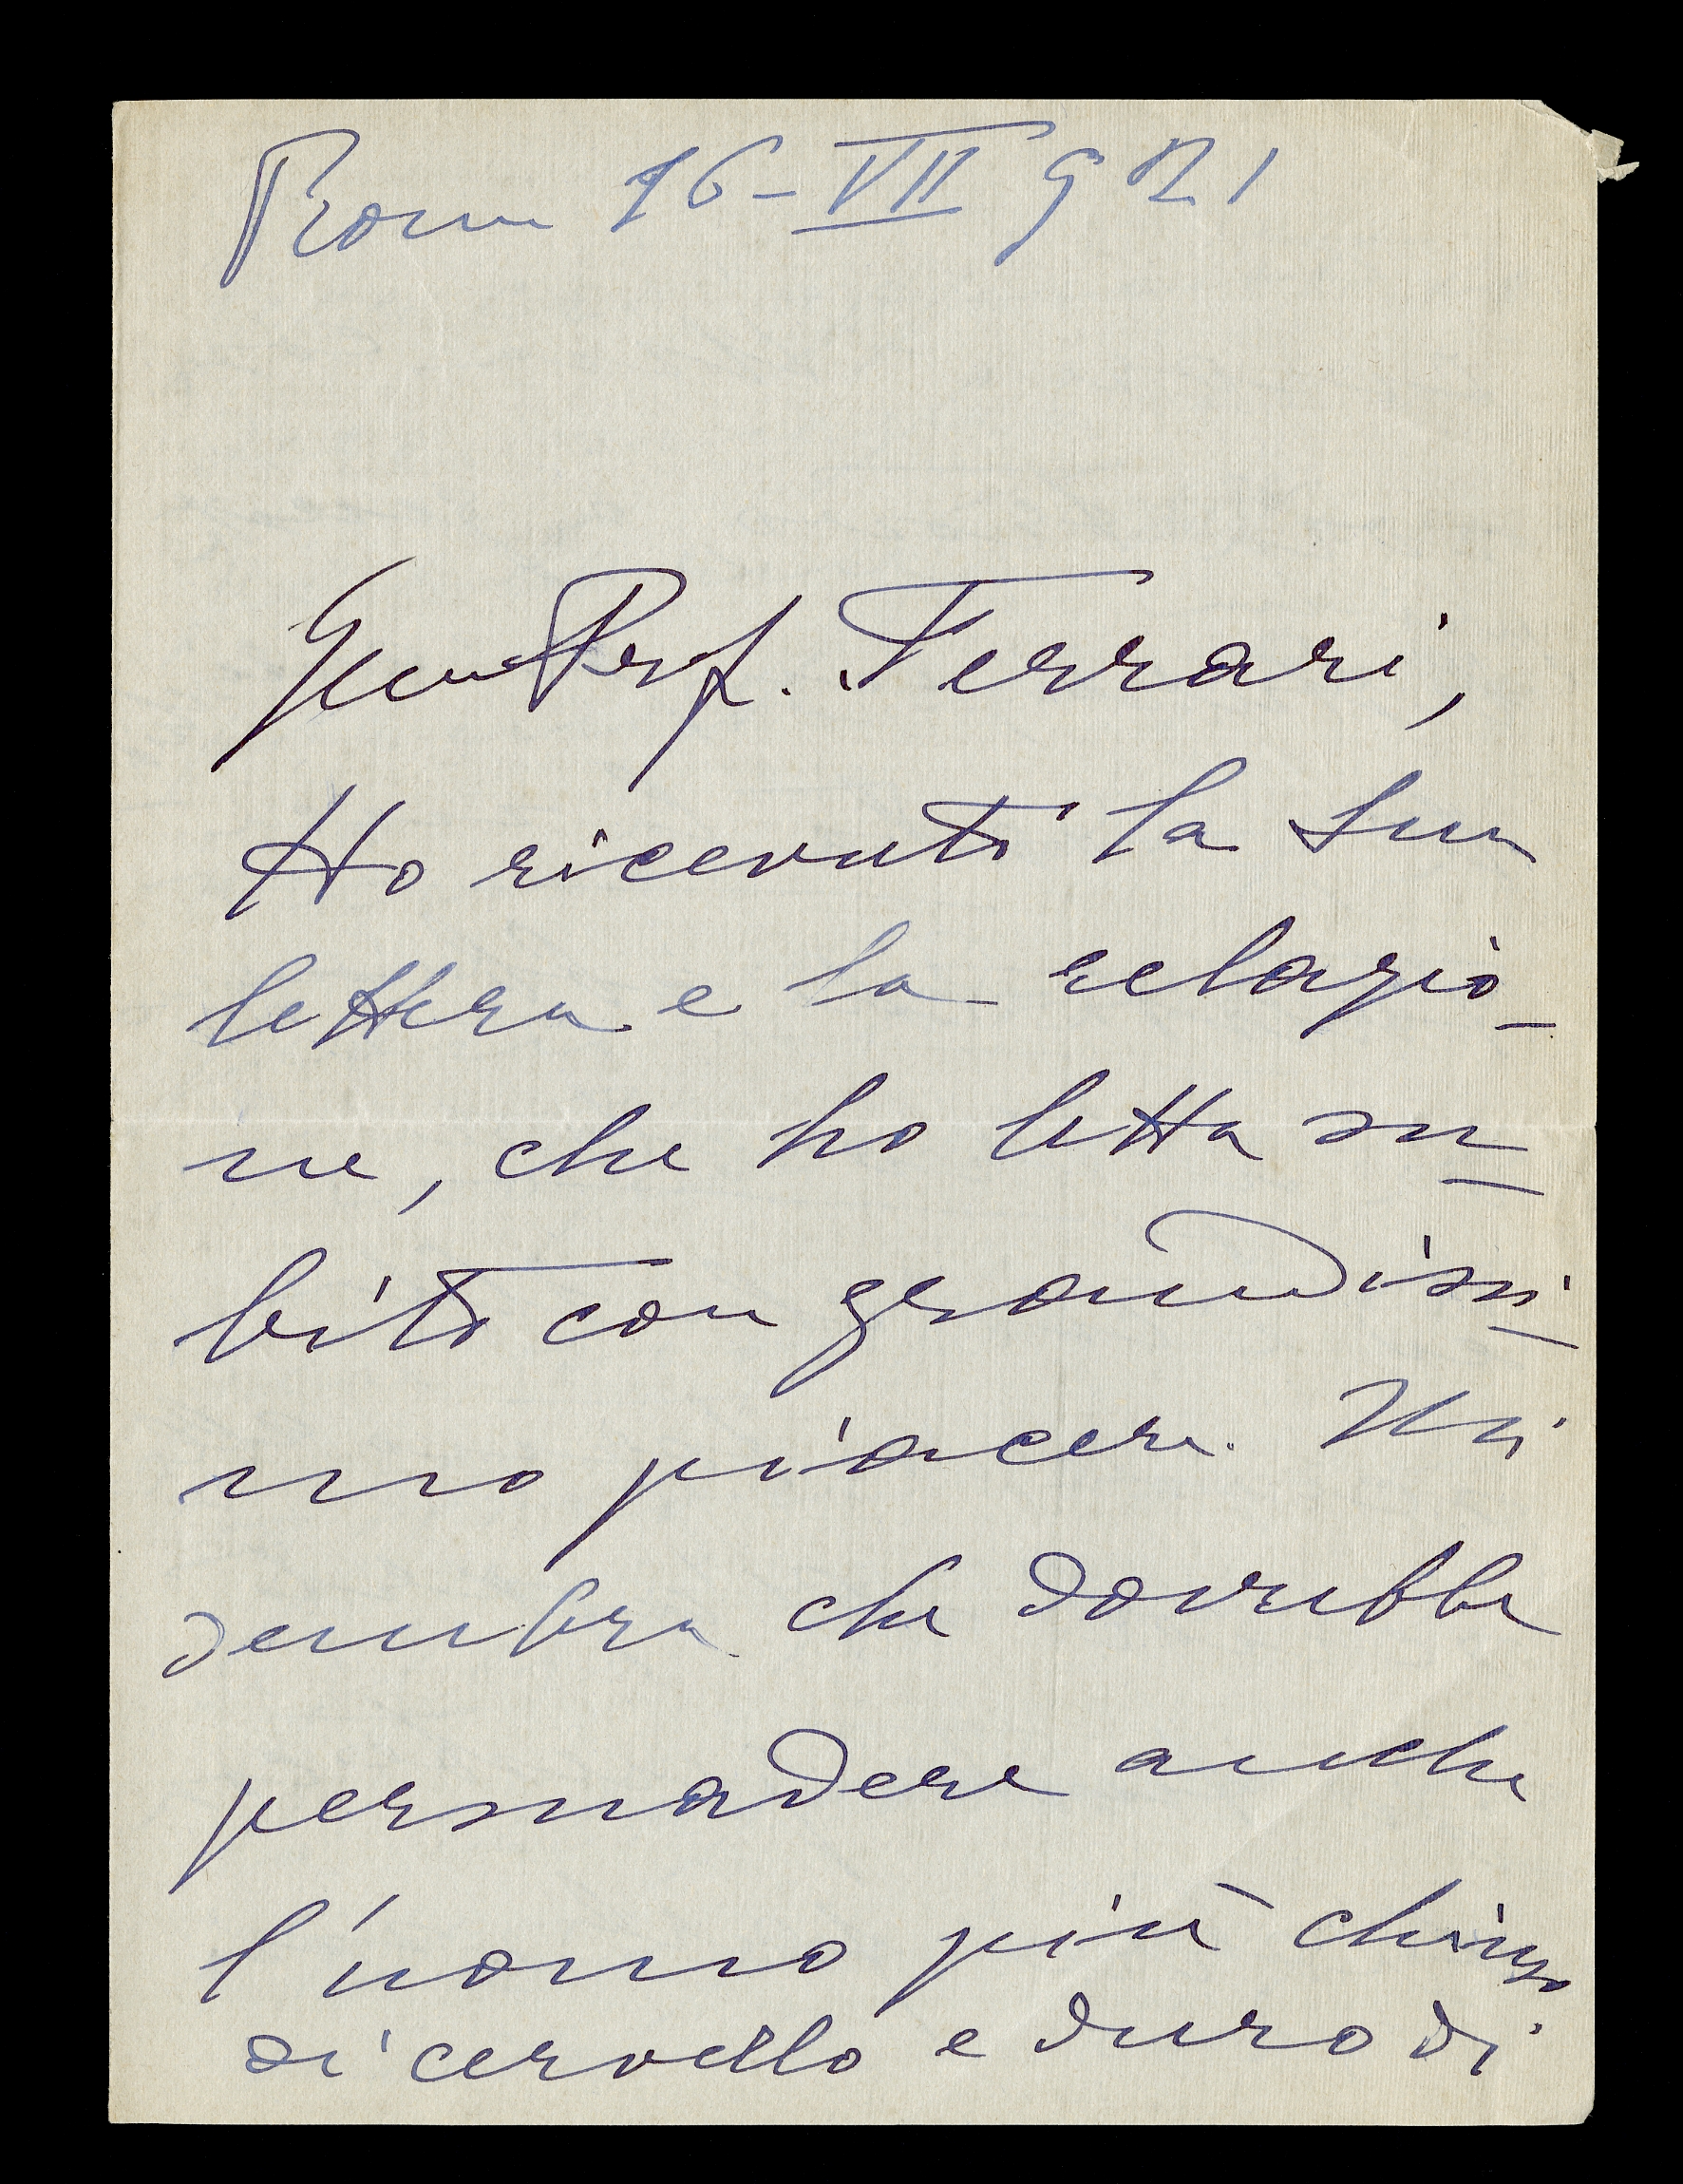 Roma 16-VII 921
Gen Prof. Ferrari,
Ho ricevuto la sua
lettera e la relazio-
ne, che ho letta su-
bito con grandissi-
mo piacere. Mi
sembra che dovrebbe
persuadere anche
l'uomo più chiuso
di cervello e duro di